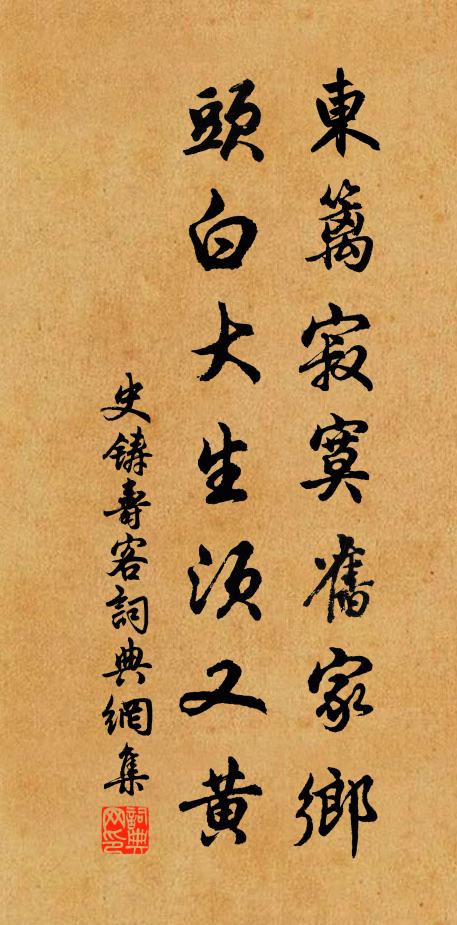 東籬寂寞舊家鄉
頭白大生須又黃
史鑄壽客詞典網集
詞典網印